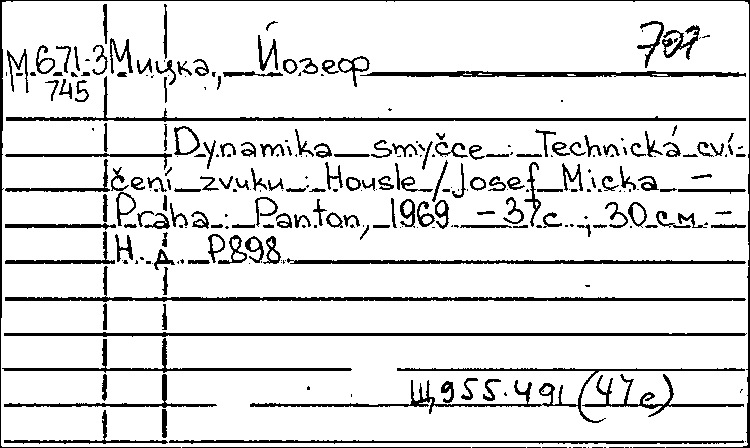 М671-3 Мицка, Йозеф 707
745
Dynamika smyčce : Technická cvi-
čení zvuku : Housle / Josef Micka –
Praha : Panton, 1969 – 37с ; 30 см –
Н. д. P898.
Щ955.491 (47е)